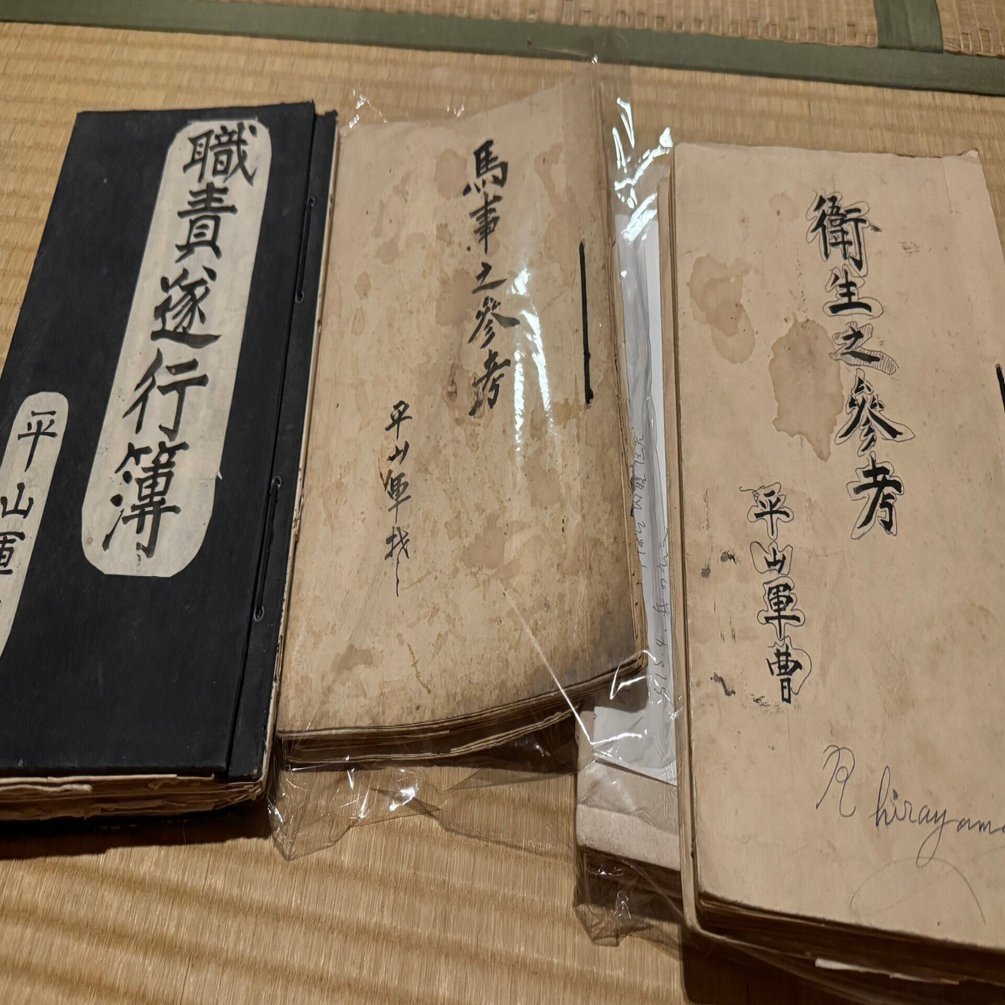 職責遂行簿
平山軍
馬事之參考
平山軍曹
衛生之參考
平山軍曹
R hirayama